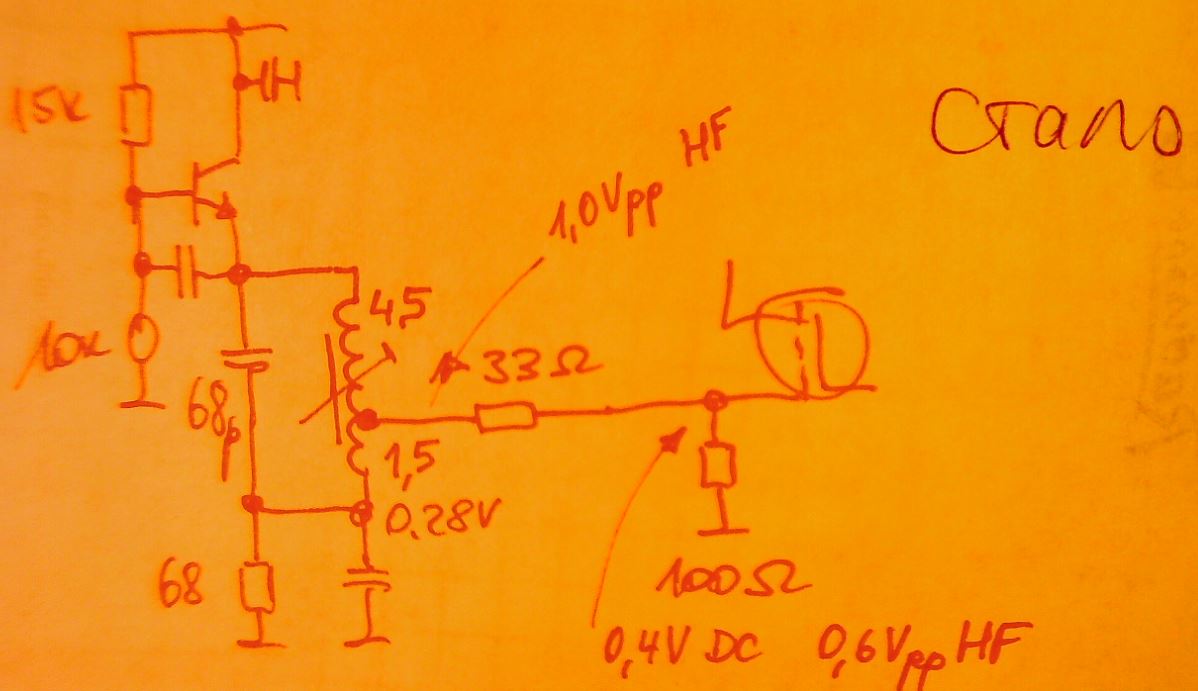 15k
HF
Стало
1,0Vpp
10k
4,5
33Ω
68p
1,5
0.28V
68
100Ω
0,4V DC 0,6Vpp HF